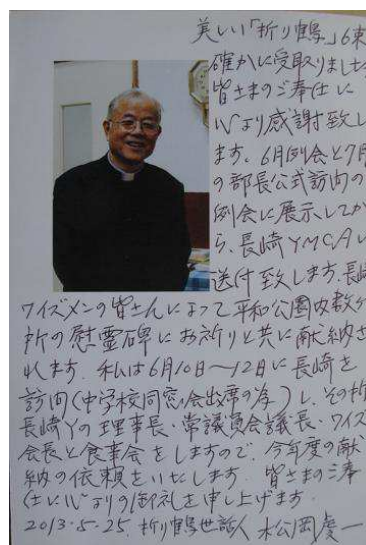 美しい「折り鶴」6束
確かに受取りました
皆さまのご奉仕に
心より感謝致し
ます。6月例会と7月
の部長公式訪問の
例会に展示してか
ら、長崎YMCAに
送付致します。長崎
ワイズメンの皆さんによって平和公園内数ヶ
所の慰霊碑にお祈りと共に献納さ
れます。私は6月10日〜12日に長崎を
訪問(中学校同窓会出席の為)し、その折
長崎Yの理事長・常議員会議長・ワイズ
会長と食事会をしますので、今年度の献
納の依頼をいたします。皆さまのご奉
仕に心よりの御礼を申し上げます。
2013.5.25. 折り鶴世話人 松岡虔一